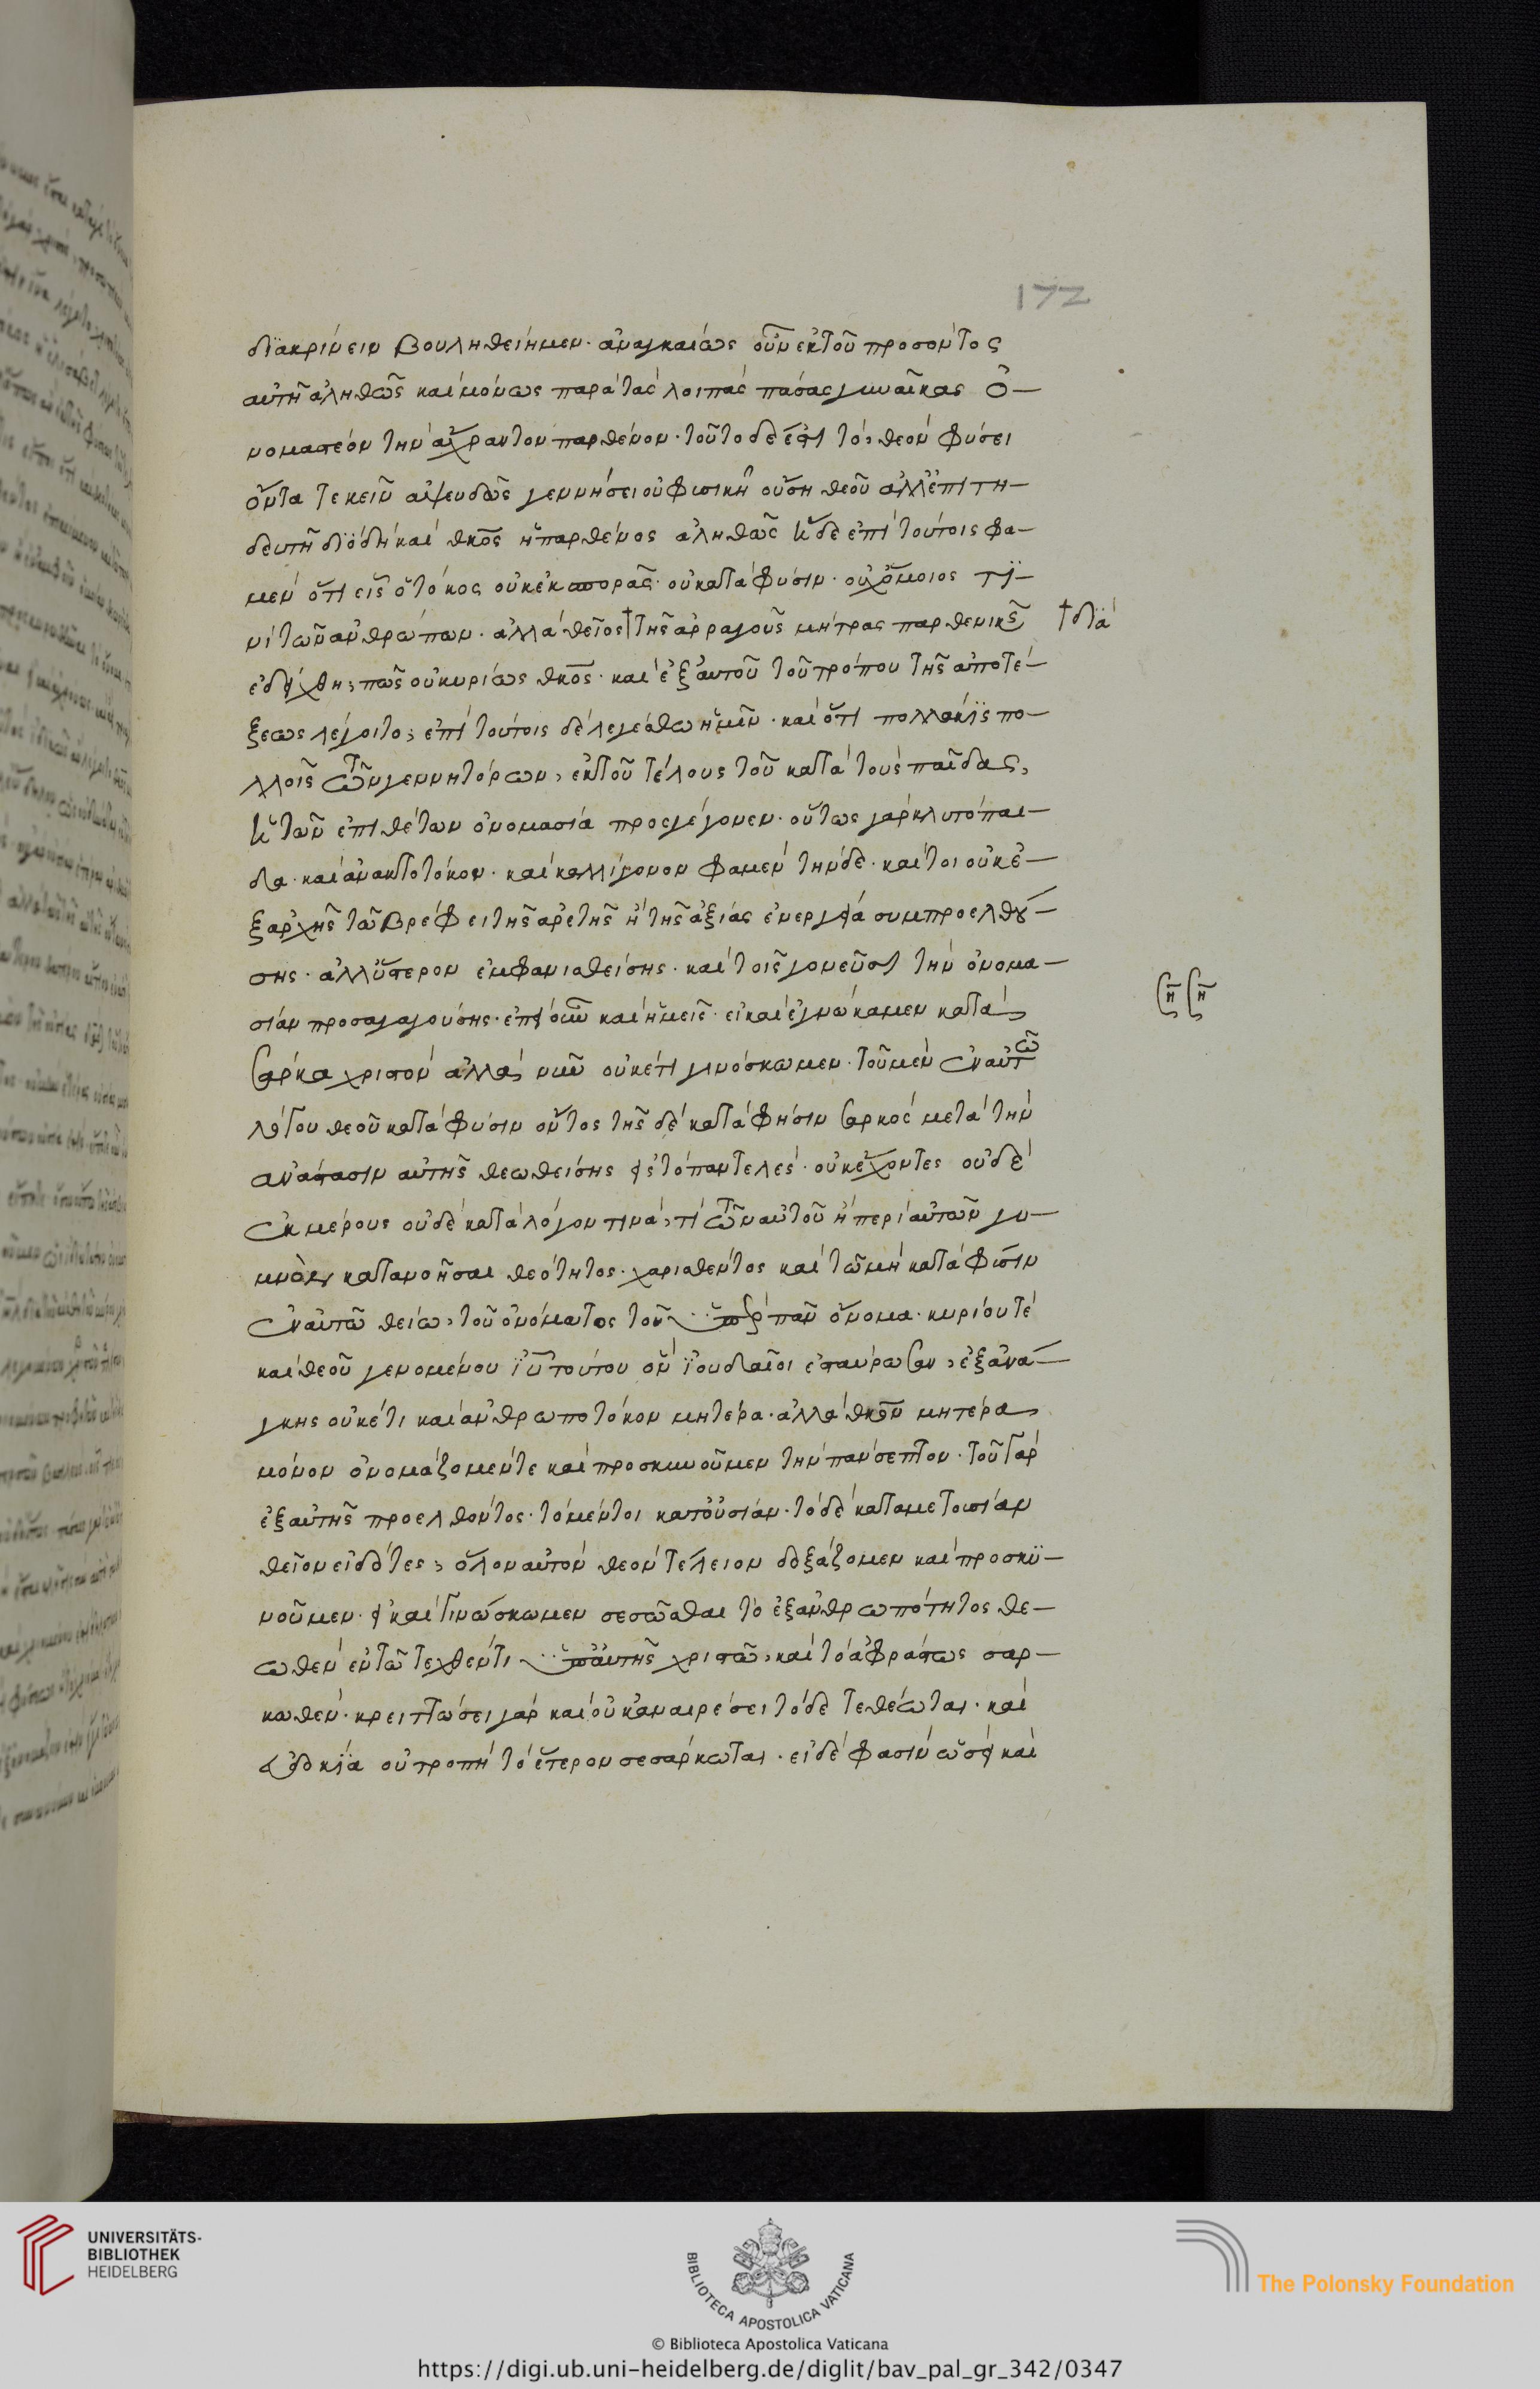 172
διακρίνειν βουληθείημεν· ἀναγκαίως οὖν ἐκ τοῦ προσόντος
αὐτῇ ἀληθῶς καὶ μόνως παρὰ τὰς λοιπὰς πάσας γυναῖκας ὀ-
νομαστέον τὴν ἄχραντον παρθένον· τοῦτο δέ ἐστι τὸ, θεὸν φύσει
ὄντα τεκεῖν ἀψευδῶς γεννήσει οὐ φυσικῇ οὔση θεοῦ ἀλλ' ἐπιτη-
δευτῇ διὸ δὴ καὶ θκος ἡ παρθένος ἀληθῶς κ δε ἐπὶ τούτοις φα-
μεν ὅτι εἷς ὁ τόκος οὐκ ἐκ σπορᾶς· οὐ κατὰ φύσιν· οὐχ ὅμοιος τϊ-
νὶ τῶν ἀνθρώπων· ἀλλὰ θεῖος † τῆς ἀρραγοῦς μήτρας παρθενικῆς
† διὰ
ἐδείχθη, πῶς οὐ κυρίως θκος· καὶ ἐξ αὐτοῦ τοῦ τρόπου τῆς ἀποτέ-
ξεως λέγοιτο, ἐπὶ τούτοις δὲ λεγέσθω ἡμῖν· καὶ ὅτι πολλάκϊς πο-
λλοῖς τῶν γεννητόρων, ἐκ τοῦ τέλους τοῦ κατὰ τοὺς παῖδας,
κ τῶν ἐπιθέτων ὀνομασία προσγέγονεν· οὕτως γὰρ κλυτόπαι-
δα· καὶ ἀνακτοτόκον· καὶ καλλίγονον φαμὲν τήνδε· καίτοι οὐκ ἐ-
ξαρχῆς τῷ βρέφει τῆς ἀρετῆς ἢ τῆς ἀξίας ἐνεργεία συμπροελθού-
σης· ἀλλ' ὕστερον ἐμφανισθείσης· καὶ τοῖς γονεῦσι τὴν ὀνομα-
σίαν προσαγαγούσης· ἐπεὶ οὖν καὶ ἡμεῖς· εἰ καὶ ἐγνώκαμεν κατὰ
σάρκα χριστὸν ἀλλὰ νῦν οὐκέτι γινόσκωμεν· τοῦ μὲν ἐν αὐτῶ
λόγου θεοῦ κατὰ φύσιν ὄντος τῆς δὲ κατὰ φήσιν σαρκὸς μετὰ τὴν
ἀνάστασιν αὐτῆς θεωθείσης εἰς τὸ παντελές· οὐκ ἔχοντες οὐδὲ
ἐκ μέρους οὐδὲ κατὰ λόγον τινὰ, τί τῶν αὐτοῦ ἢ περὶ αὐτῶν γυ-
μνὸν κατανοῆσαι θεότητος· χαρισθέντος καὶ τῷ μὴ κατὰ φύσιν
ἐν αὐτῶ θείω, τοῦ ὀνόματος τοῦ ὑπὲρ πᾶν ὄνομα· κυρίου τὲ
καὶ θεοῦ γενομένου ϊῦ τούτου ὃν ϊουδαῖοι ἐσταύρωσαν, ἐξ ἀνά-
γκης οὐκέτι καὶ ἀνθρωποτόκον μητέρα· ἀλλὰ θκον μητέρα
μόνον ὀνομάζομέν τε καὶ προσκυνοῦμεν τὴν πανσεπτον· τοῦ γὰρ
ἐξ αὐτῆς προελθόντος· τὸ μέντοι κατ' οὐσίαν· τὸ δὲ κατα μετουσίαν
θεῖον εἰδότες, ὅλον αὐτὸν θεὸν τέλειον δοξάζομεν καὶ προσκϋ-
νοῦμεν· εἰ καὶ γινώσκωμεν σεσῶσθαι τὸ ἐξ ἀνθρωπότητος θε-
ωθὲν ἐν τῷ τεχθέντι ὑπ' αὐτῆς χριστῶ, καὶ τὸ ἀφράστως σαρ-
κωθὲν· κρειττώσει γὰρ καὶ οὐκ ἀναιρέσει τόδε τεθέωται· καὶ
εὐδοκϊα οὐ τροπῇ τὸ ἕτερον σεσάρκωται· εἰ δὲ φασὶν ὥσει καὶ
UNIVERSITÄTS-
BIBLIOTHEK
HEIDELBERG
BIBLIOTECA APOSTOLICA VATICANA
© Biblioteca Apostolica Vaticana
The Polonsky Foundation
https://digi.ub.uni-heidelberg.de/diglit/bav_pal_gr_342/0347